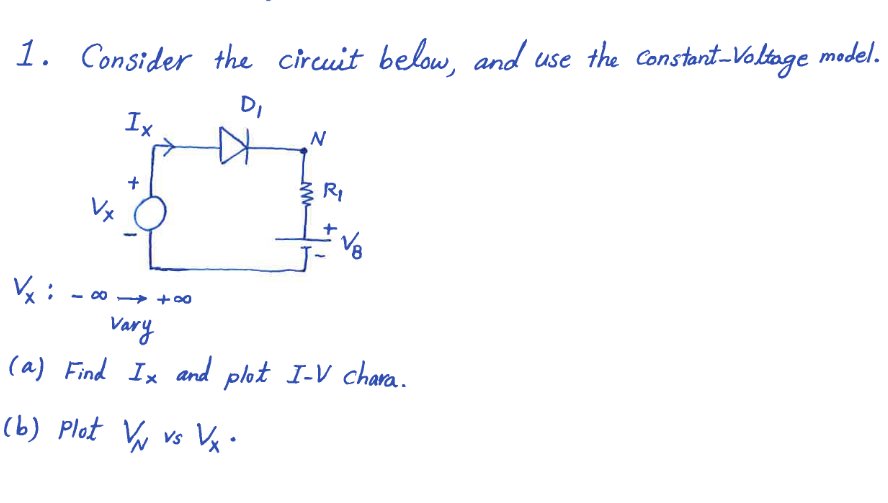 1. Consider the circuit below, and use the Constant-Voltage model.
D1
Ix
N
+
R1
Vx
+
VB
-
-
Vx : - ∞ → +∞
Vary
(a) Find Ix and plot I-V chara.
(b) Plot VN vs Vx.